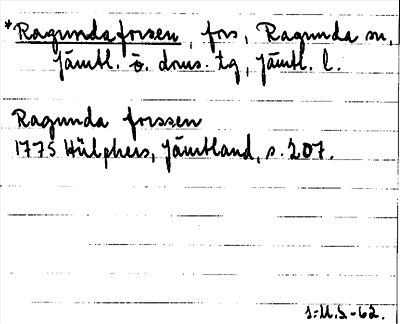 *Ragundaforsen, fors, Ragunda sn,
Jämtl. ö. doms. tg, Jämtl. l.
Ragunda forssen
1775 Hülphers, Jämtland, s. 207.
J:M.S.-62.